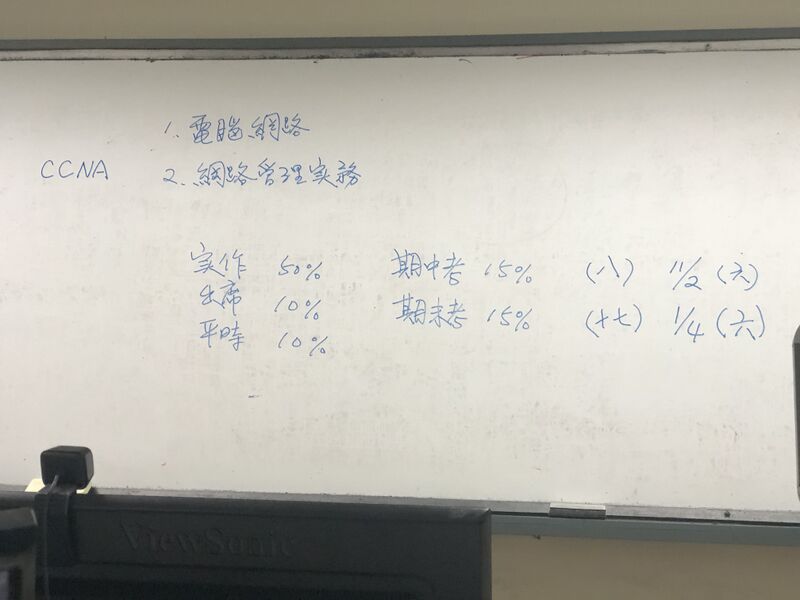 1. 電腦網路
CCNA 2. 網路管理实務
实作 50% 期中考 15% (八) 11/2 (六)
出席 10% 期末考 15% (十七) 1/4 (六)
平時 10%
ViewSonic